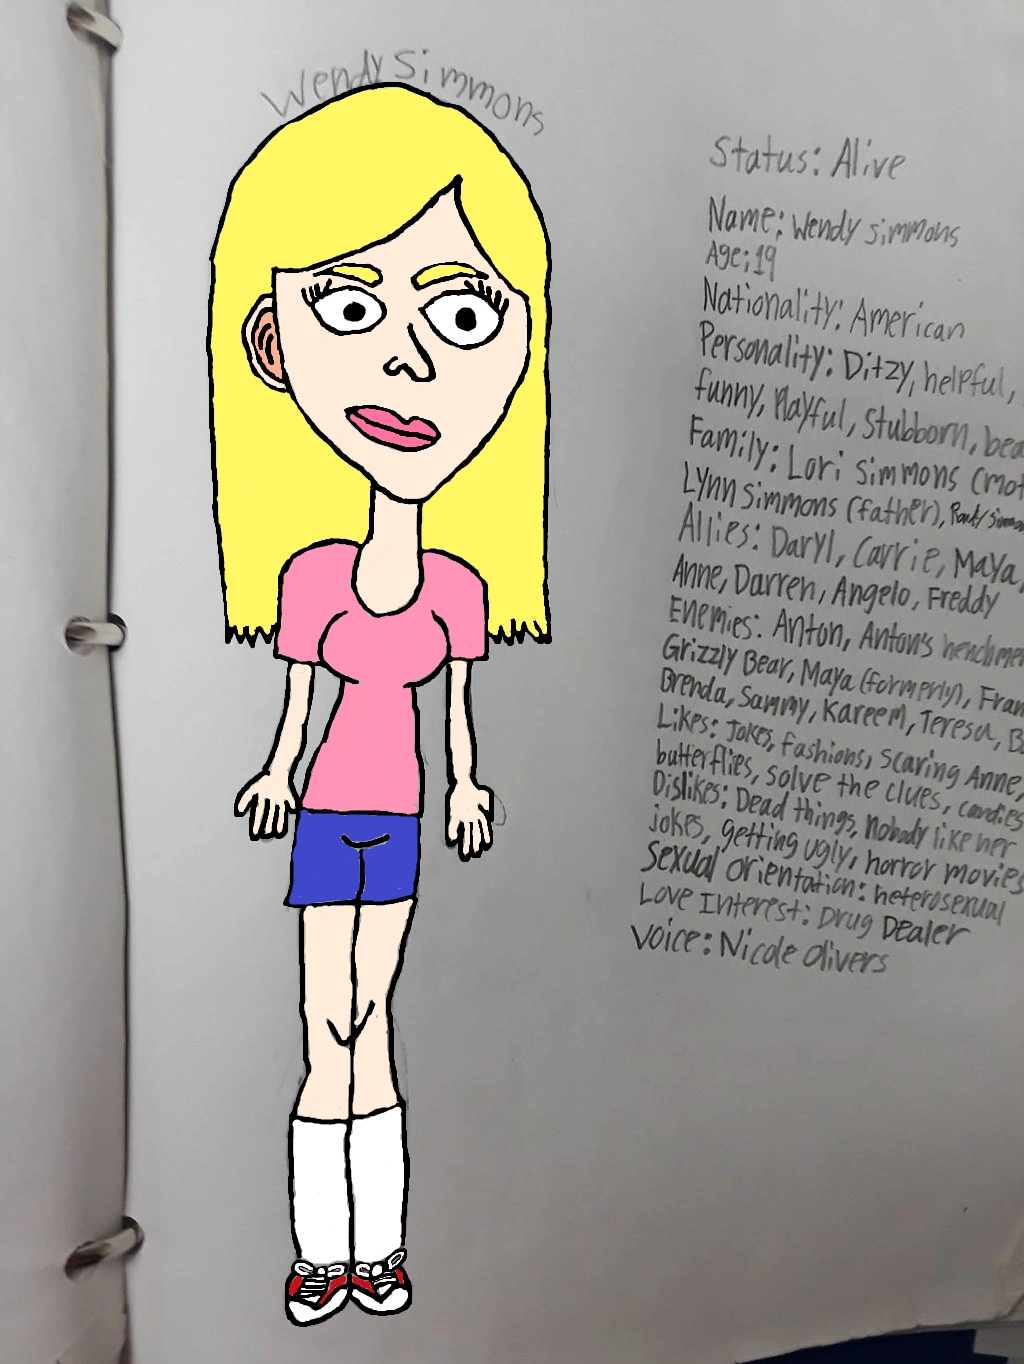 Wendy Simmons
Status: Alive
Name: Wendy Simmons
Age: 19
Nationality: American
Personality: Ditzy, helpful,
funny, Playful, Stubborn, bea
Family: Lori Simmons (mot
Lynn Simmons (father), Randy Simmons
Allies: Daryl, Carrie, Maya,
Anne, Darren, Angelo, Freddy
Enemies: Anton, Anton's henchmen
Grizzly Bear, Maya (formerly), Fran
Brenda, Sammy, Kareem, Teresa, B
Likes: Jokes, fashions, scaring Anne,
butterflies, solve the clues, candies
Dislikes: Dead things, nobody like her
jokes, getting ugly, horror movies
Sexual Orientation: heterosexual
Love Interest: Drug Dealer
Voice: Nicole Olivers